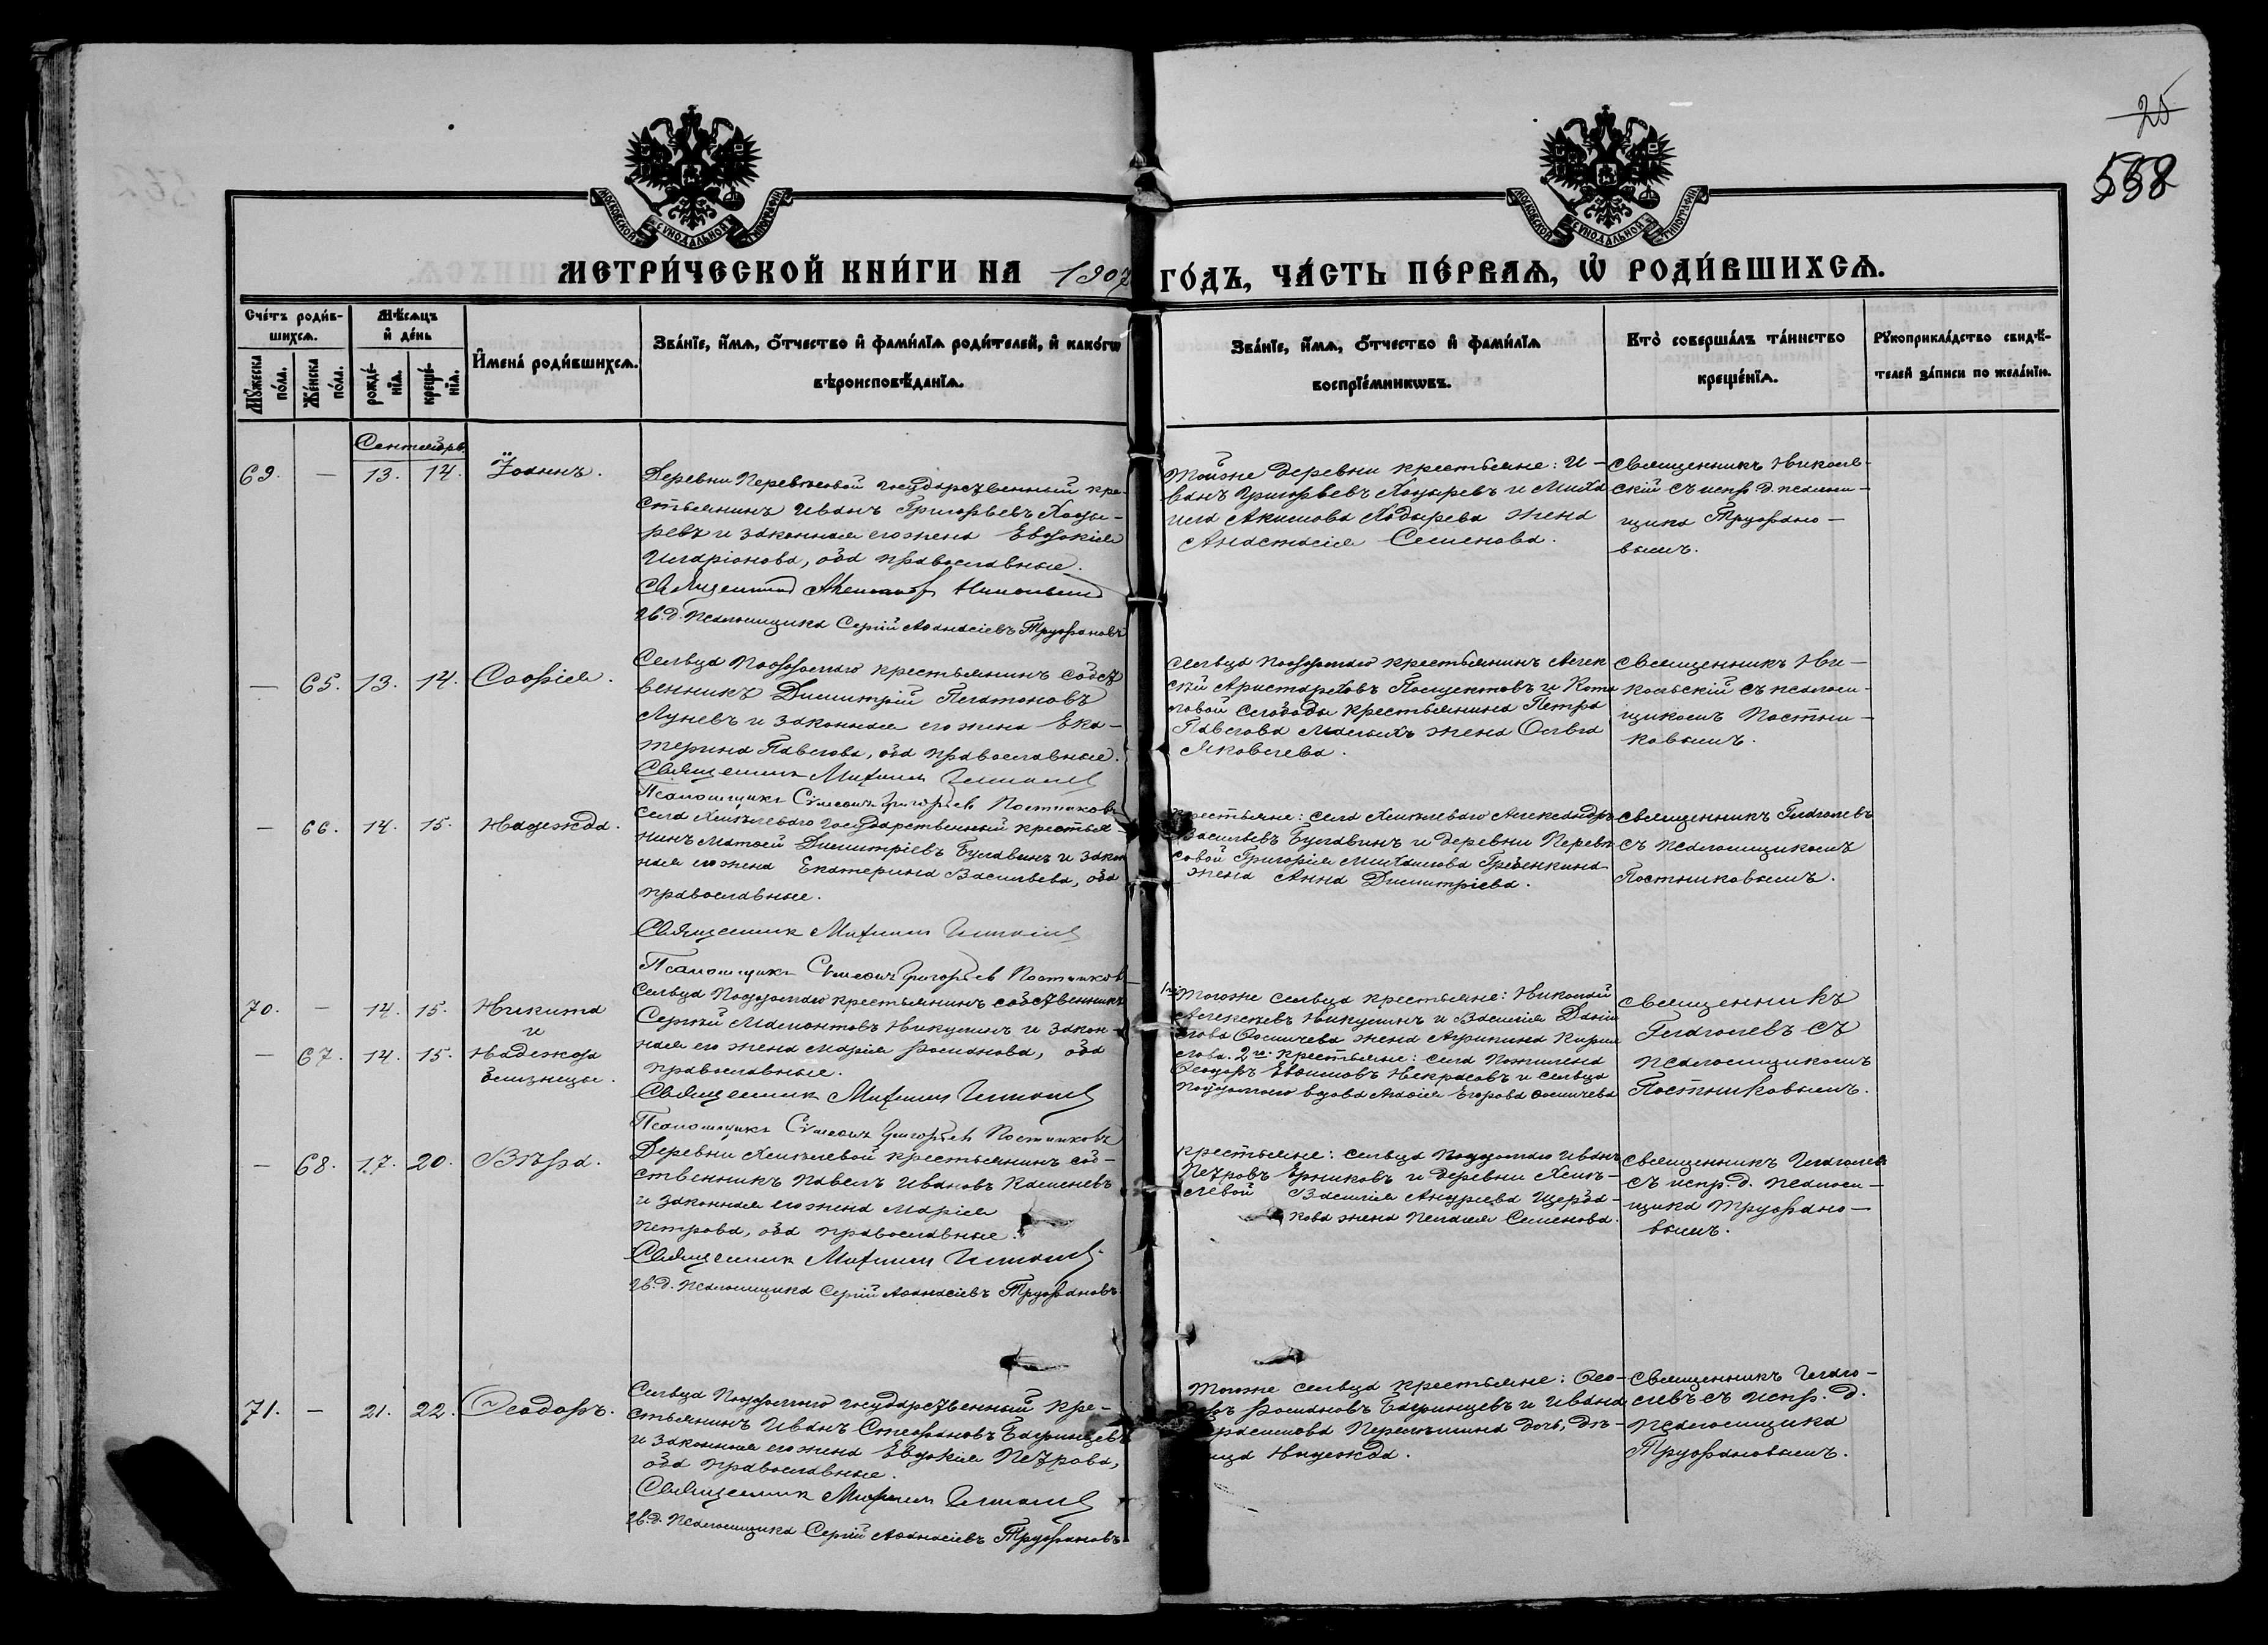 25
558
МОСКОВСКОЙ СѴНОДАЛЬНОЙ ТИПОГРАФІИ
МОСКОВСКОЙ СѴНОДАЛЬНОЙ ТИПОГРАФІИ
МЕТРИ́ЧЕСКОЙ КНИ́ГИ НА 1907 ГО́ДЪ, ЧА́СТЬ ПЕ́РВАѦ, Ѡ РОДИ́ВШИХСѦ.
Сче́тъ роди́в-
шихсѧ.
Мꙋ́жеска по́ла.
Же́нска по́ла.
Мѣ́сѧцъ
и҆ де́нь
рожде́-
нїѧ.
креще́-
нїѧ.
И҆мена̀ роди́вшихсѧ.
Зва́нїе, и҆́мѧ, ѻ҆́тчество и҆ фами́лїѧ роди́телей, и҆ како́гѡ
вѣроисповѣ́данїѧ.
Зва́нїе, и҆́мѧ, ѻ҆́тчество и҆ фами́лїѧ
воспрїе́мникѡвъ.
Кто̀ соверша́лъ та́инство
креще́нїѧ.
Рꙋкоприкла́дство свидѣ́-
телей за́писи по жела́нїю.
Сентябрь
69. — 13. 14. Іоаннъ.
Деревни Перевѣсовой государственный кре-
стьянинъ Иванъ Григорьевъ
ревъ и законная его жена Евдокія
Иларіонова, оба православные.
Священникъ Никольскій
И. д. Псаломщика Сергій Аѳанасіевъ Труфановъ
Тойже деревни крестьяне: И-
ванъ Григорьевъ и Миха
ила Акимова жена
Анастасія Семенова.
Священникъ Николь-
скій съ испр. д. псалом-
щика Труфано-
вымъ.
— 65. 13. 14. Софія.
Сельца крестьянинъ собст
венникъ Димитрій Платоновъ
Луневъ и законная его жена Ека-
терина Павлова, оба православные.
Священникъ Михаилъ
Псаломщикъ Сѵмеонъ Григорьев Постниковъ
Сельца крестьянинъ Алек
сѣй Аристарховъ и
слободы крестьянина Петра
Павлова жена Ольга
Яковлева.
Священникъ Ни-
кольскій съ псалом-
щикомъ Постни-
ковымъ.
— 66. 14. 15. Надежда.
Села государственный крестья-
нинъ Матѳей Димитріевъ Булавинъ и закон
ная его жена Екатерина Васильева, оба
православные.
Священникъ Михаилъ
Псаломщикъ Сѵмеонъ Григорьев Постников
крестьяне: села Александръ
Васильевъ Булавинъ и деревни Перевѣ
совой Григорія Михаилова Гребенкина
жена Анна Димитріева.
Священникъ Глаголевъ
съ псаломщикомъ
Постниковымъ.
70. — 14. 15. Никита
и
— 67. 14. 15. Надежда
близнецы.
Сельца крестьянинъ собственникъ
Сергѣй Мамонтовъ Никулинъ и закон-
ная его жена Марія Романова, оба
православные.
Священникъ Михаилъ
Псаломщикъ Сѵмеонъ Григорьев Постниковъ
Тогоже сельца крестьяне: Николай
Алексѣевъ Никулинъ и Василія Дани
лова жена Агрипина Кирил
лова. 2го. крестьяне: села
Ѳеодоръ Евѳимовъ Некрасовъ и сельца
вдова Егорова
Священникъ
Глаголевъ съ
псаломщикомъ
Постниковымъ.
— 68. 17. 20. Вѣра.
Деревни крестьянинъ соб-
ственникъ Павелъ Ивановъ Каменевъ
и законная его жена Марія
Петрова, оба православные.
Священникъ Михаилъ
И. д. Псаломщика Сергій Аѳанасіевъ Труфановъ.
крестьяне: сельца Иванъ
Петровъ Ерниковъ и деревни
Василія Андреева Щерба-
кова жена Пелагея Семенова.
Священникъ Глаголев
съ испр. д. псалом-
щика Труфано-
вымъ.
71. — 21. 22. Ѳеодоръ.
Сельца государственный кре-
стьянинъ Иванъ Стефановъ
и законная его жена Евдокія Петрова,
оба православные.
Священникъ Михаилъ
И. д. Псаломщика Сергій Аѳанасіевъ Труфановъ
Тогоже сельца крестьяне: Ѳео-
Романовъ и Ивана
дочь, дѣ-
вица Надежда.
Священникъ Глаго-
левъ съ испр. д.
псаломщика
Труфановымъ.